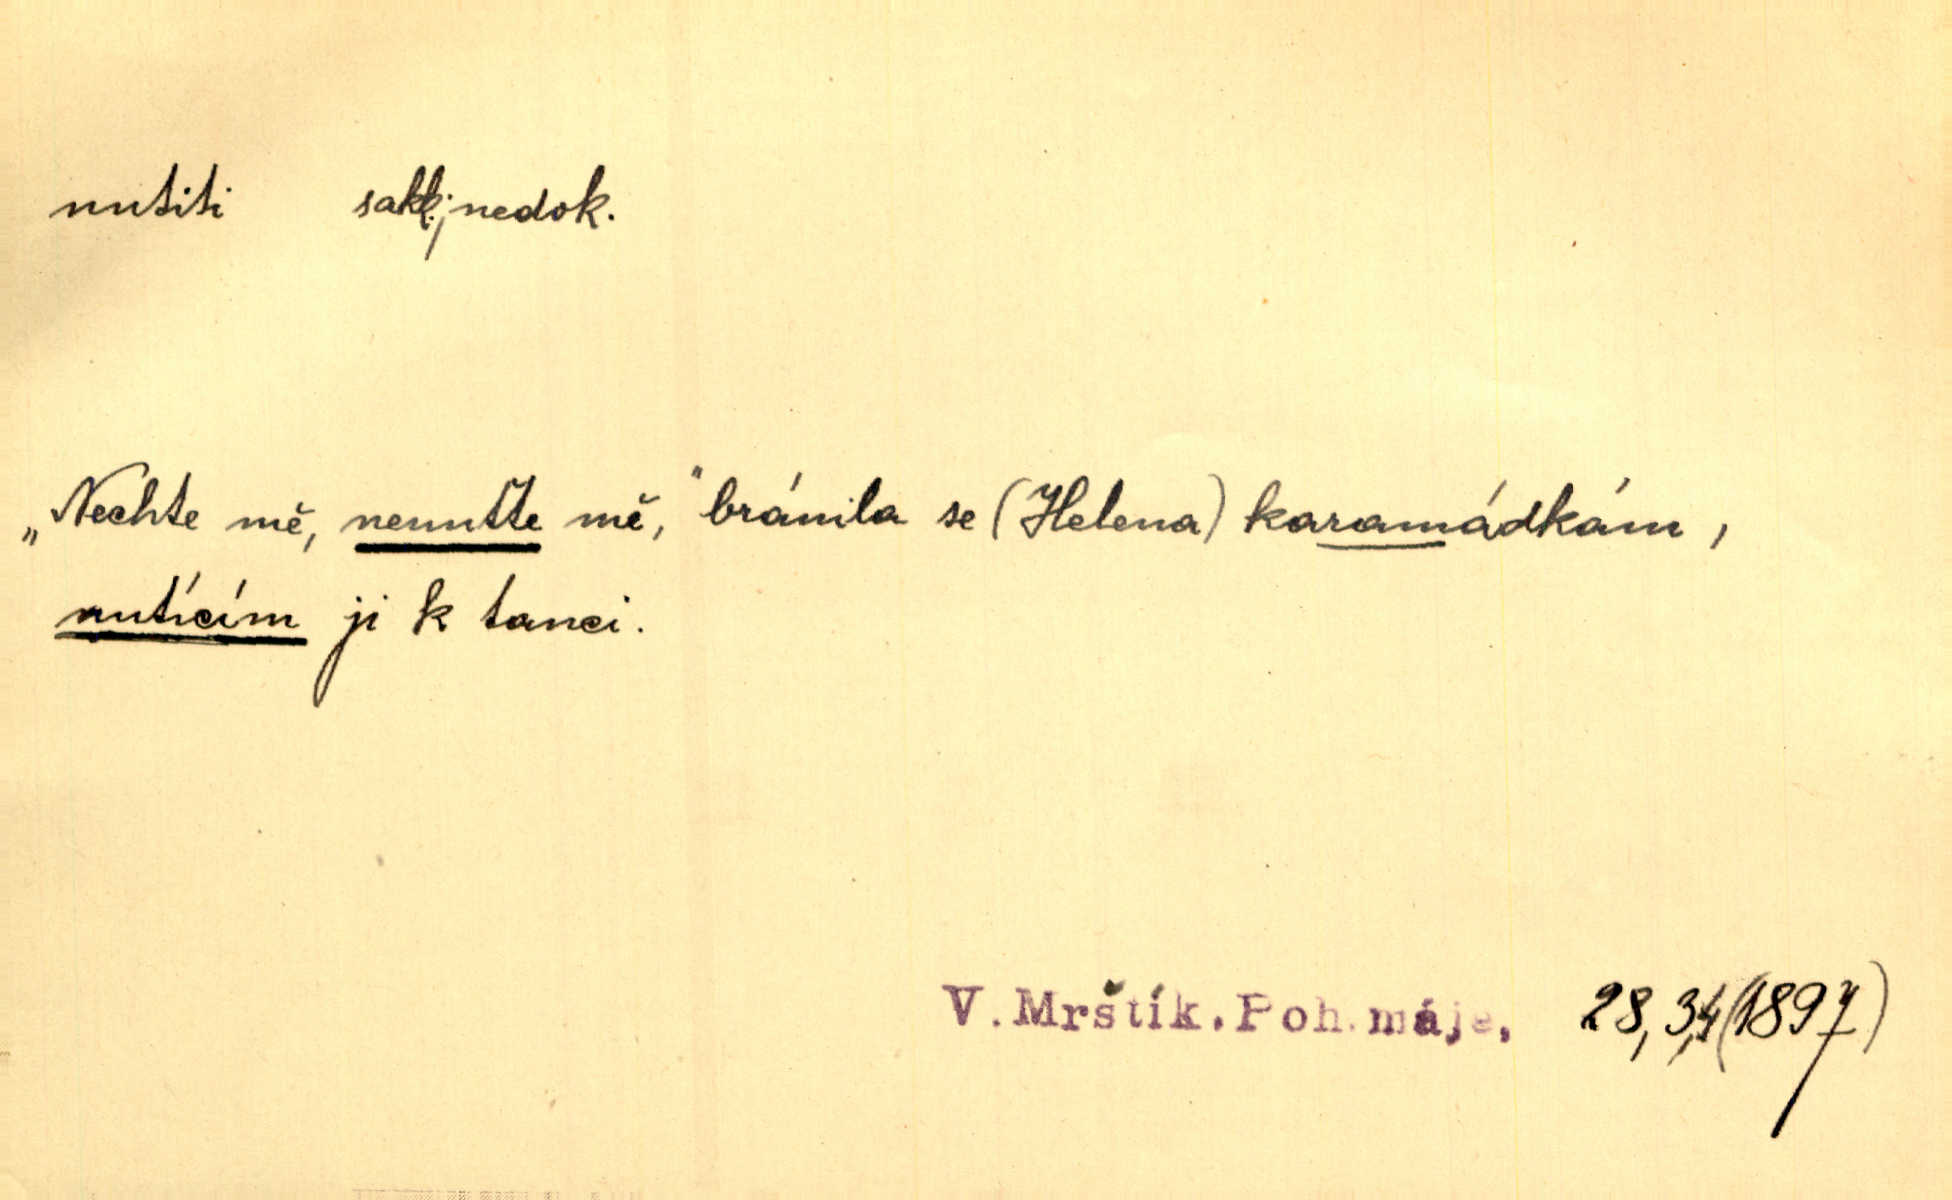 nutiti sakk; nedok.
„Nechte mě, nenuťte mě," bránila se (Helena) karamádkám,
nutícím ji k tanci.
V. Mrštík. Poh. máje, 28, 3,4 (1897)